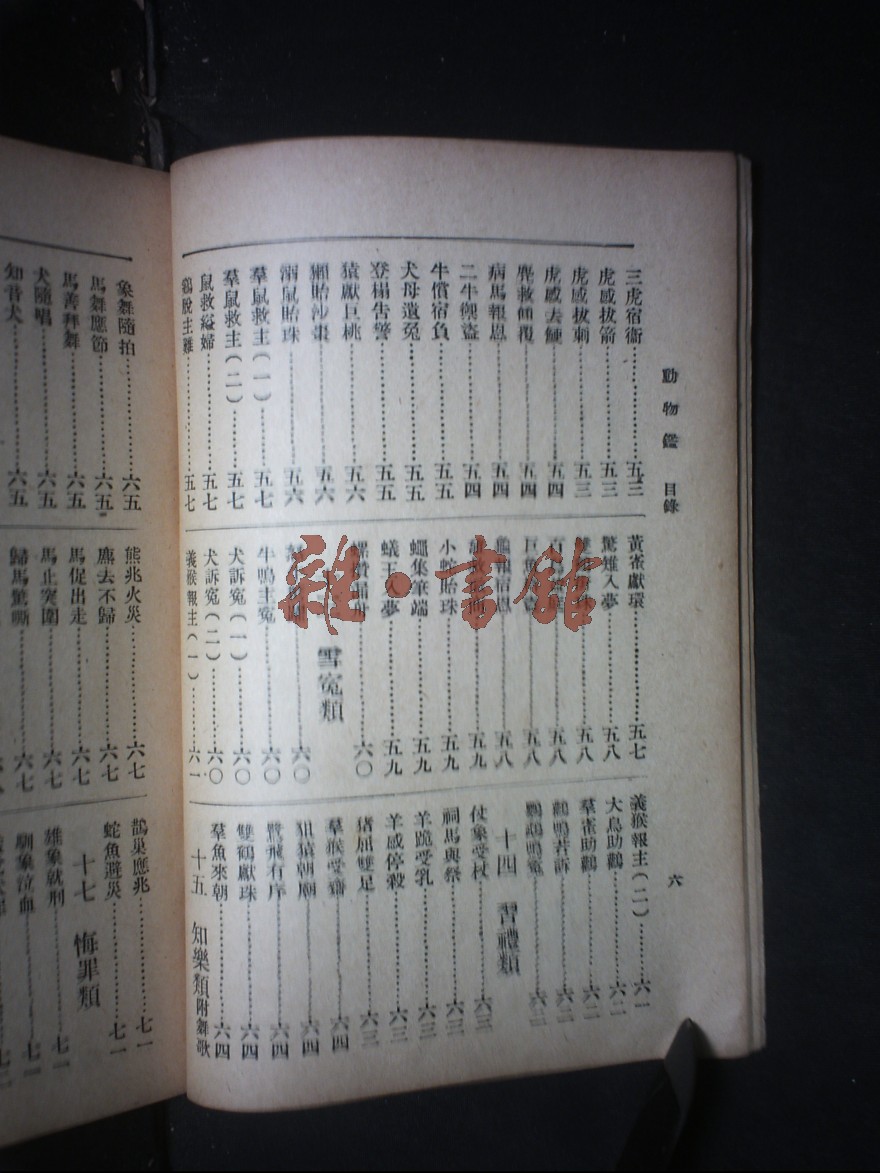 動物鑑 目錄
六
三虎宿衞……五三
虎感拔箭……五三
虎感拔刺……五三
虎感去鯁……五四
病馬報恩……五四
二牛禦盜……五四
牛償宿負……五五
犬母遺冤……五五
登榻告警……五五
猿獻巨桃……五六
獺貽沙棗……五六
溺鼠貽珠……五六
羣鼠救主(一)……五七
羣鼠救主(二)……五七
鼠救縊婦……五七
鷄脫主難……五七
黃雀獻環……五七
驚雉入夢……五八
五八
五八
五八
五九
小蛇貽珠……五九
蠅集筆端……五九
蟻王入夢……五九
六〇
雪冤類
六〇
牛鳴主冤……六〇
犬訴冤(一)……六〇
犬訴冤(二)……六〇
義猴報主(一)……六一
義猴報主(二)……六一
大鳥助鸛……六二
羣雀助鸛……六二
鸛鳴苦訴……六二
鸚鵡鳴冤……六二
十四 習禮類
仗象受杖……六三
祠馬與祭……六三
羊跪受乳……六三
羊感停殺……六三
猪屈雙足……六三
羣猴受齋……六四
狙猿朝廟……六四
鷺飛有序……六四
雙鶴獻珠……六四
羣魚來朝……六四
十五 知樂類附舞歌
象舞隨拍……六五
馬舞應節……六五
馬善拜舞……六五
犬隨唱……六五
知音犬……六五
熊兆火災……六七
麈去不歸……六七
馬促出走……六七
馬止突圍……六七
歸馬驚嘶……六七
鵲巢應兆……七一
蛇魚避災……七一
十七 悔罪類
雄象就刑……七一
馴象泣血……七一
雜·書館